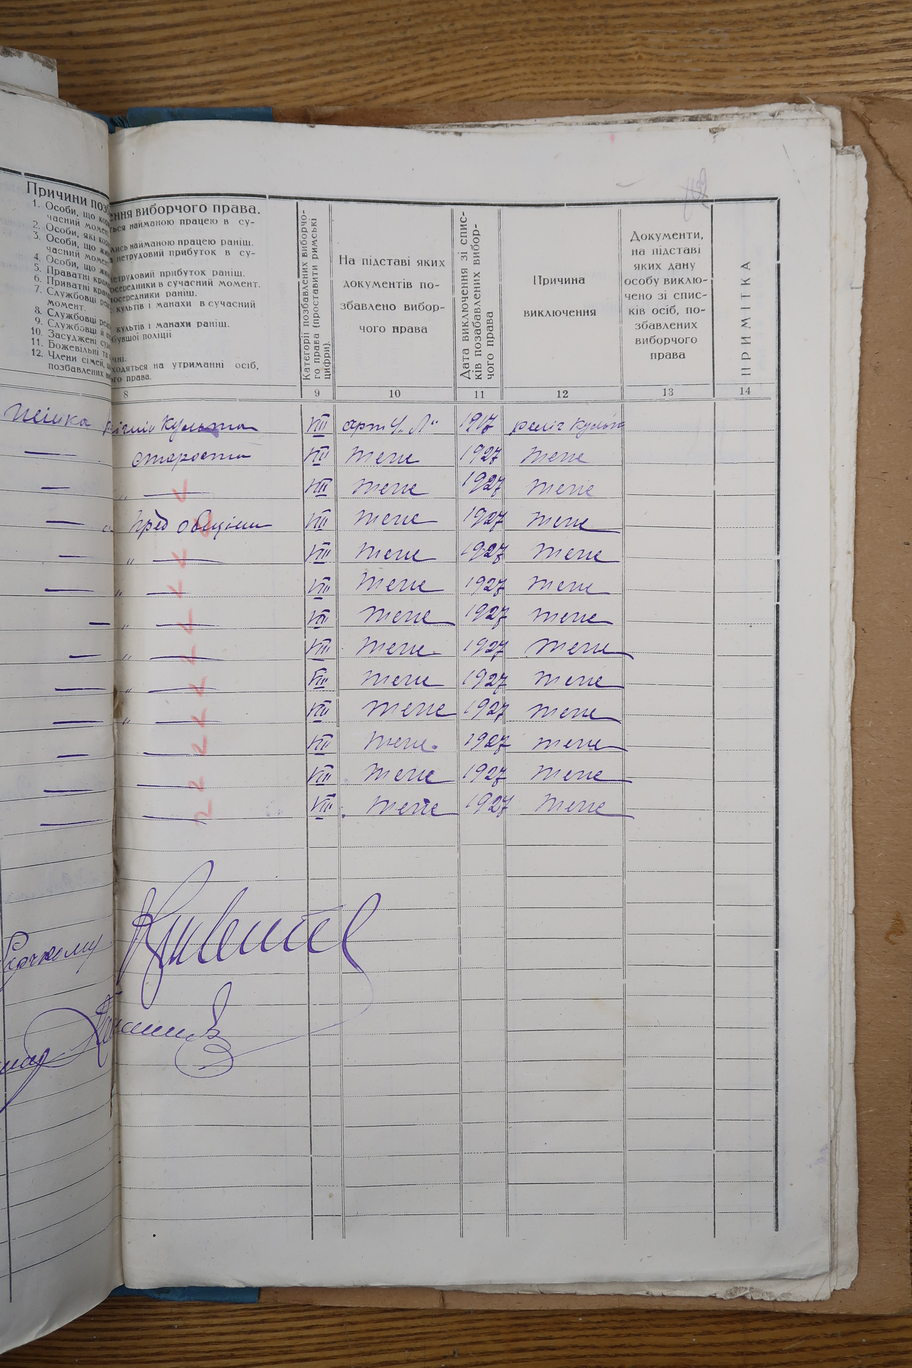 Причини поз
ення виборчого права.
1. Особи, що
ться найманою працею в су-
часний момен
2. Особи, які
ись найманою працею раніш.
3. Особи, що
нетрудовий прибуток в су-
часний момен
4. Особи, що
нетрудовий прибуток раніш.
5. Приватні
посередники в сучасний момент.
6. Приватні
посередники раніш.
7. Службовці
культів і манахи в сучасний
момент
8. Службовці
культів і манахи раніш.
9. Службовці й
бувшої поліції
10. Засуджені
11. Божевільні та
12. Члени сімей,
ходяться на утриманні осіб,
позбавлених
го права.
Категорії позбавлених виборчо-
го права (проставити римські
цифри).
На підставі яких
документів по-
збавлено вибор-
чого права
Дата виключення зі спис-
ків позабавлених вибор-
чого права
Причина
виключення
Документи,
на підставі
яких дану
особу виклю-
чено зі спис-
ків осіб, по-
збавлених
виборчого
права
ПРИМІТКА
8 9 10 11 12 13 14
культа VIII 19 7 реліг культ
староста VIII теж 1927 теж
— „ — VIII теж 1927 теж
— Пред общини VIII теж 1927 теж
— „ — VIII теж 1927 теж
— „ — VIII теж 1927 теж
— „ — VIII теж 1927 теж
— „ — VIII теж 1927 теж
— „ — VIII теж 1927 теж
— „ — VIII теж 1927 теж
— — VIII теж 1927 теж
— — VIII теж 1927 теж
— — VIII теж 1927 теж